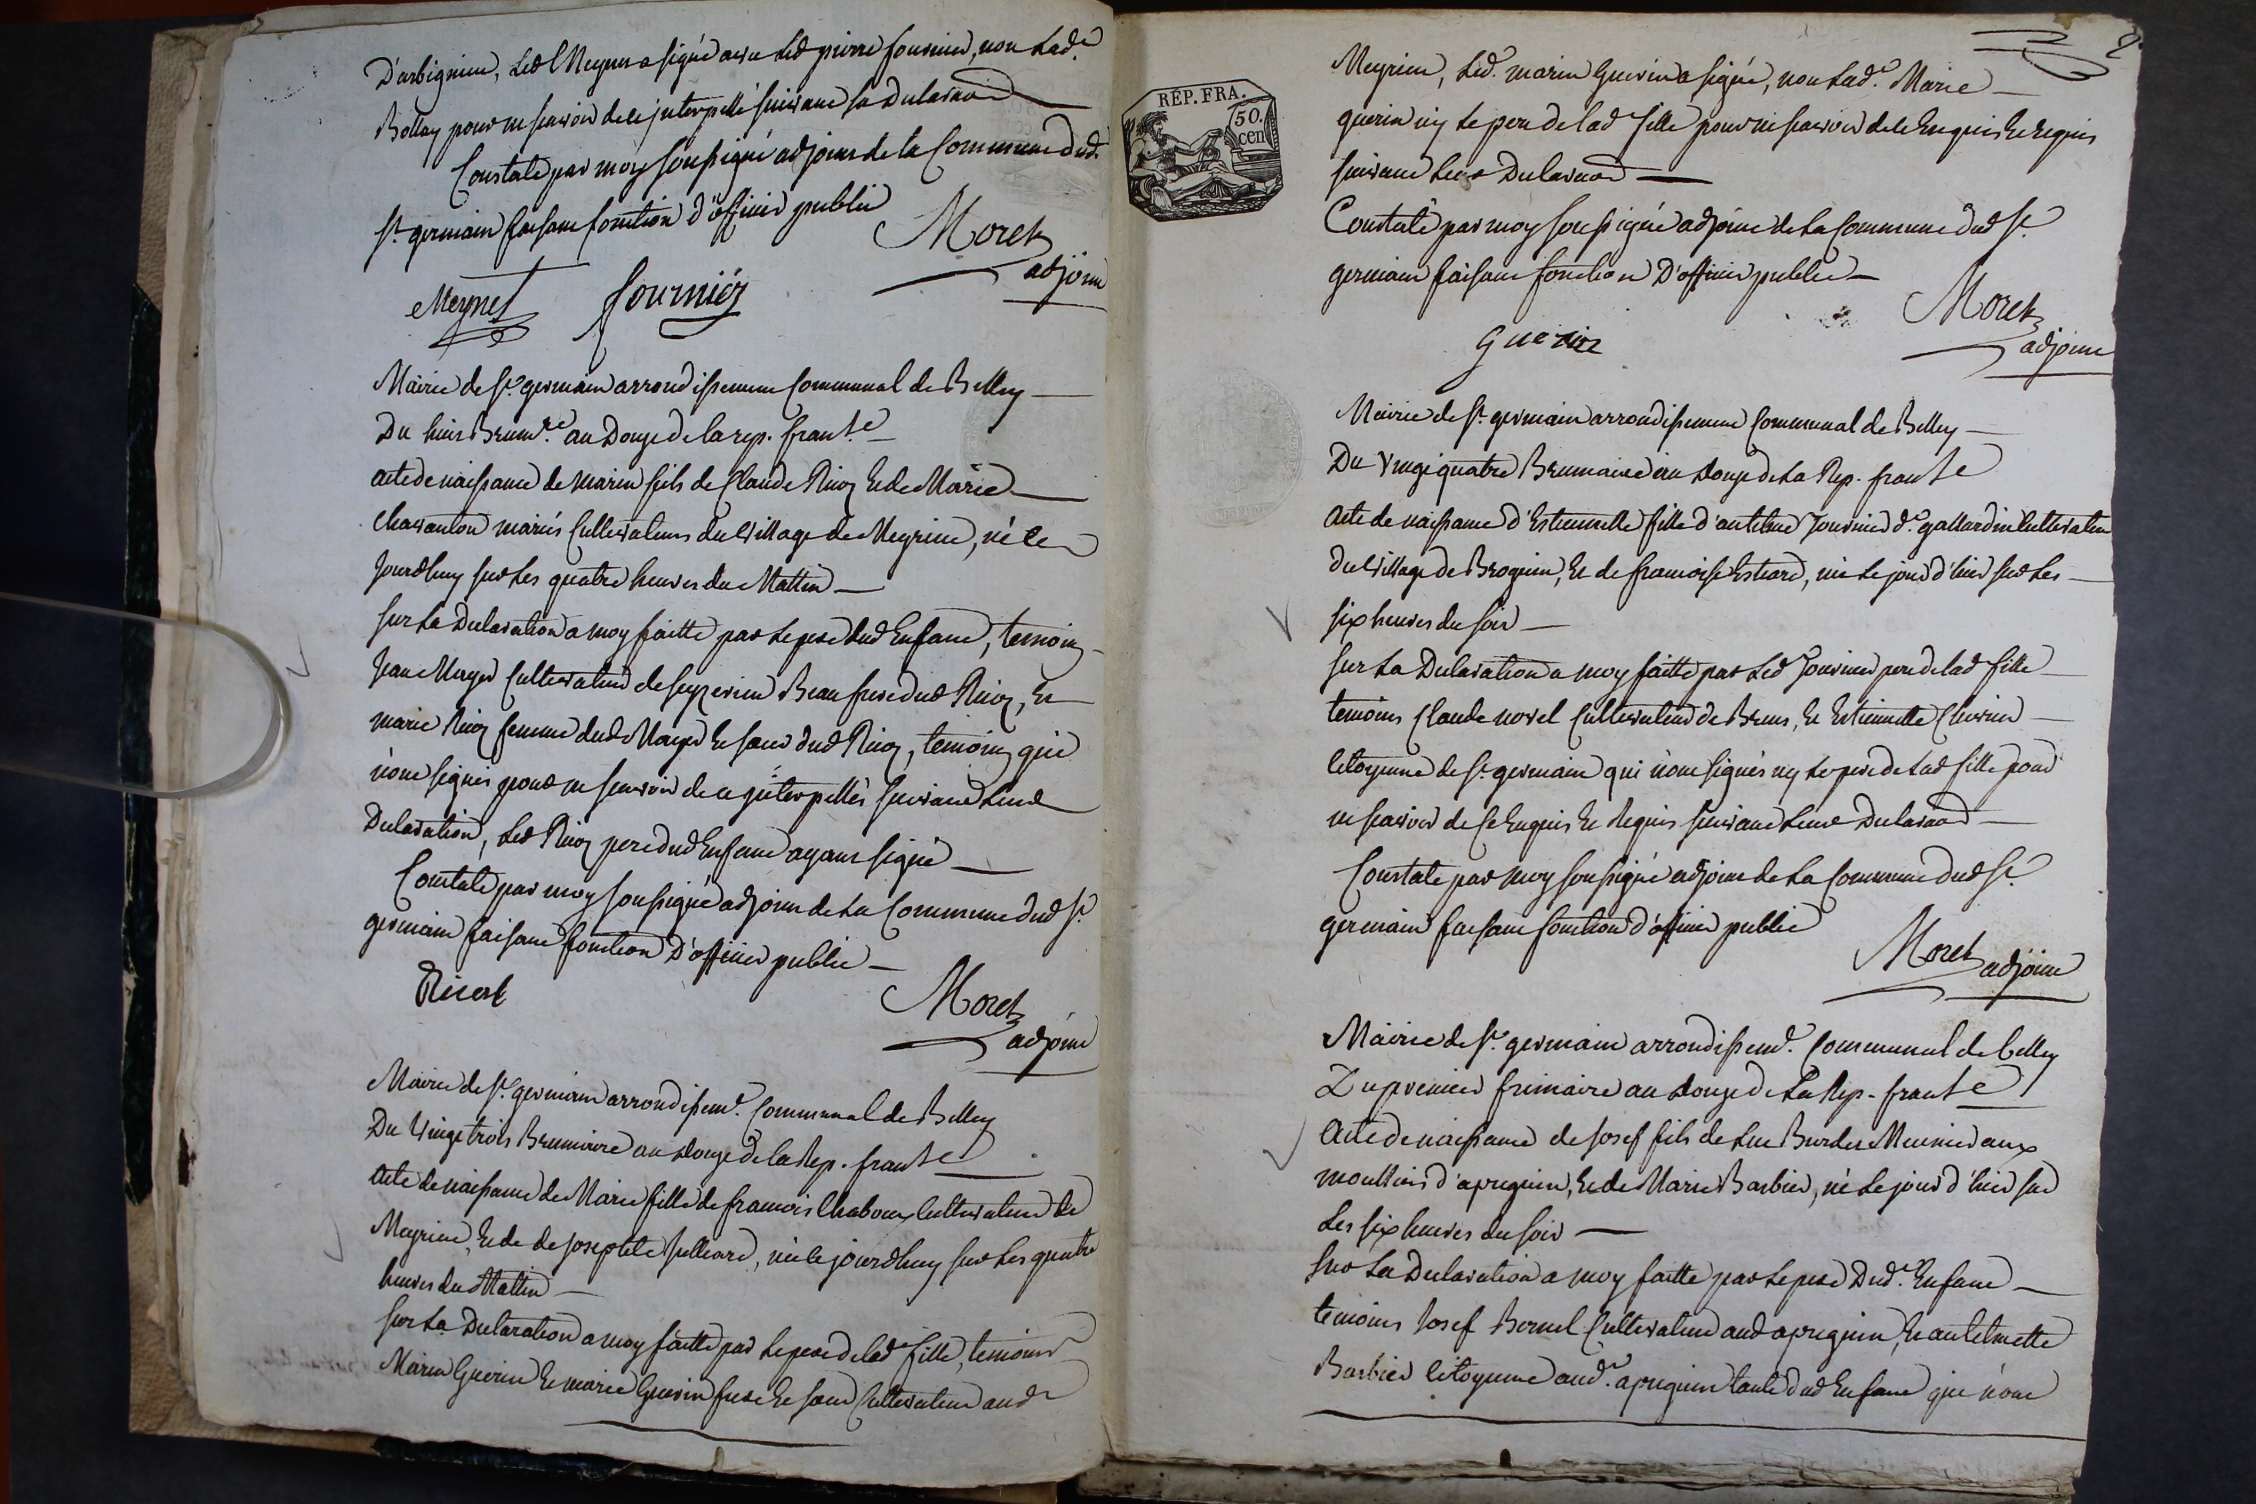 D'arbignieu, Led Meynet a signé avec Led pierre fournier, non Lad.e
Bottay pour ne scavoir de ce interpellé suivant sa Declaraon
Constaté par moy soussigné adjoint de la Commune dud.
St germain faisant fonction d'officier public
Moret
adjoint
Meynet fournier
Mairie de St germain arrondissement Communal de Belley
Du huit Brum.re an Douze de la rep. franse
acte de naissance de marin fils de Claude Ricoz et de Marie
chavanton mariés Cultivateurs du village de Meyrieu, né ce
jourdhuy sur Les quatre heures du Mattin
sur La Declaration a moy faitte par Le pere dud Enfant, temoins
Jean Mayer Cultivateur de seyzerieu Beau frere dud Ricoz, et
marie Ricoz femme dud Mayer et soeur dud Ricoz, temoins qui
n'ont signés pour ne scavoir de ce interpellés suivant Leur
Declaration, Led Ricoz pere dud Enfant ayant signé
Constaté par moy soussigné adjoint de La Commune dud St
germain faisant fonction D'officier public
Moret
adjoint
Mairie de St germain arrondissemt. Communal de Belley
Du vingt trois Brumaire an douze de la Rep. franse
acte de naissance de Marie fille de francois Chaboux Cultivateur de
Meyrieu, et de de josephte julliard, née ce jourdhuy sur Les quatre
heures du Mattin
sur La Declaration a moy faitte par Le pere de lad.e fille, temoins
Marin Guerin et marie Guerin frere et soeur Cultivateurs aud
2
REP. FRA.
50.
cen
Meyrieu, Led. marin Guerin a signé, non Lad.e Marie
guerin ny Le pere de lad fille pour ne scavoir de le Enquis et requis
suivant Leur Declaraon
Constaté par moy soussigné adjoint de La Commune dud St
germain faisant fonction D'officier public
Moret
adjoint
Guerin
Mairie de St germain arrondissement Communal de Belley
Du vingt quatre Brumaire an douze de La Rep. franse
Acte de naissance d'Estiennette fille d'antelme Jouvrier d.t gallardin Cultivateur
du village de Brognin, et de francoise Estiard, née Le jour d'hier sur Les
six heures du soir
sur La Declaration a moy faitte par Led Jouvrier pere de lad fille
temoins Claude novel Cultivateur de Brens, et Estiennette
Citoyenne de St germain qui n'ont signés ny Le pere de Lad fille pour
ne scavoir de ce Enquis et Requis suivant Leur Declaraon
Constaté par moy soussigné adjoint de La Commune dud St
germain faisant fonction d'officier public
Moret adjoint
Mairie de St germain arrondissemt. Communal de belley
Du premier frimaire an douze de La Rep. franse
Acte de naissance de Josef fils de Luc Burdet Meunier aux
moullins d'apregnin, et de Marie Barbier, né Le jour d'hier sur
Les six heures du soir
sur La Declaration a moy faitte par Le pere Dud. Enfant
temoins Josef Bornel Cultivateur aud apregnin, et antelmette
Barbier Citoyenne aud. apregnin tante dud Enfant qui n'ont